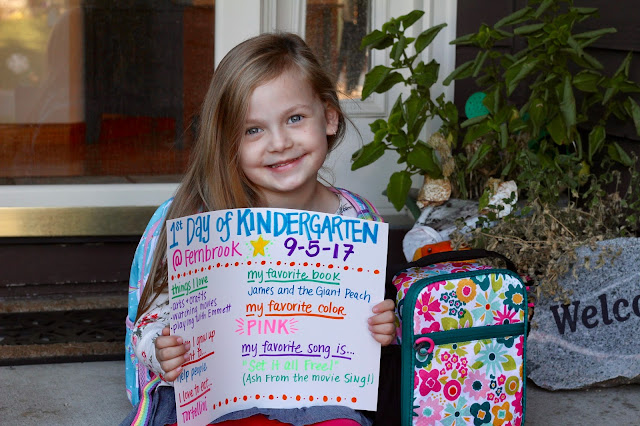 1st Day of KINDERGARTEN
@Fernbrook
9-5-17
things I love
-arts + crafts
-watching movies
-playing with Emmett
I grow up
help people
I love to eat...
tortellini
my favorite book
James and the Giant Peach
my favorite color
PINK
my favorite song is...
"Set it all Free!"
(Ash From the movie Sing!)
Welco